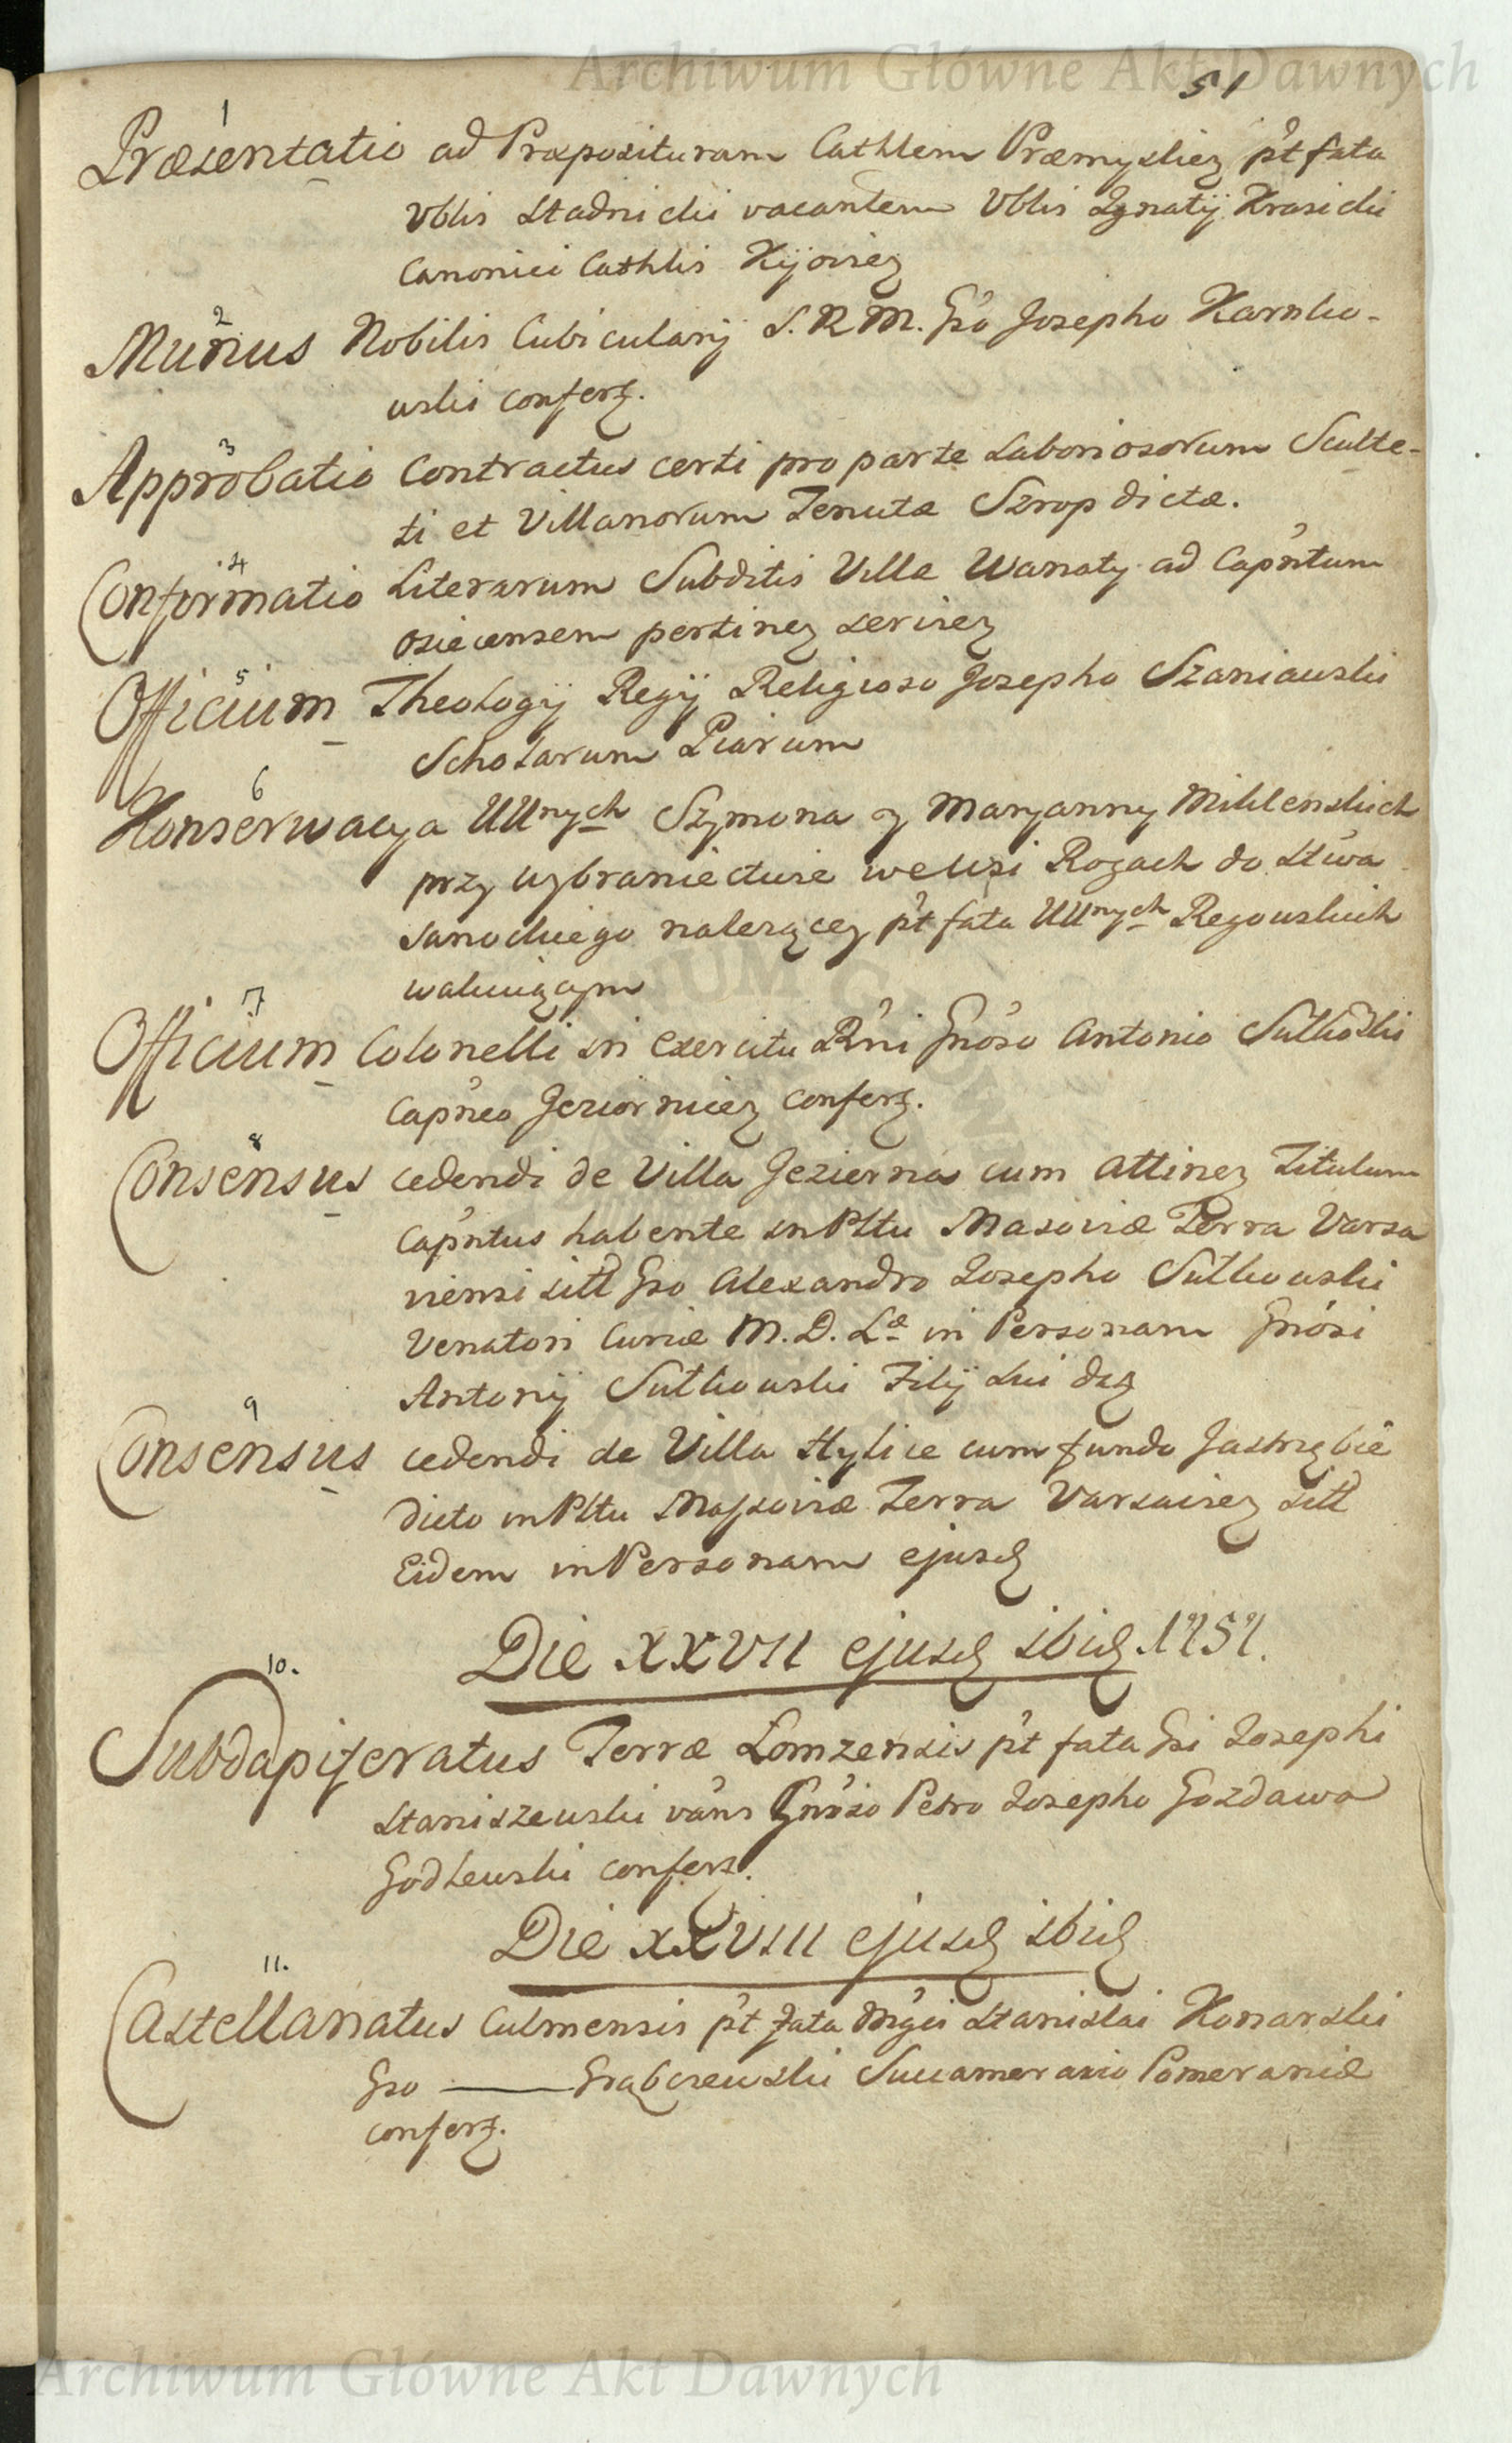 Archiwum Główne Akt Dawnych
51
1
Præsentatio ad Præposituram Cathlem Præmysliez p't fata
Vblis Stadnicki vacantem Vblis Ignatij Krasicki
Canonici Cathlis Kijoviez
2
Munus Nobilis Cubicularij S. R M. Gso Josepho Karsko-
wski conferz.
3
Approbatio Contractus certi pro parte Laboriosorum Sculte-
ti et Villanorum Tenutæ Szrop dictæ.
4
Confirmatio Literarum Subditis Villæ Wanaty ad Cap'ntum
Osiecensem pertinez serviez
5
Officium Theologij Regij Religioso Josepho Szaniawski
Scholarum Piarum
6
Konserwacya UUnych Szymona y Maryanny Miklenskich
przy wybraniectwie we Wsi Rogach do Stwa
Sanockiego nalezącey p't fata UUnych Rogowskich
wakuiącym
7
Officium Colonelli in Exercitu R'ni Gnoso Antonio Sułkowski
Cap'neo Jeziorniez conferz.
8
Consensus cedendi de Villa Jezierna cum attinez Titulum
Cap'ntus habente in Pltu Masoviæ Terra Varsa
viensi sitt Gso Alexandro Josepho Sułkowski
Venatori Curiæ M. D. Læ in Personam Gnosi
Antonij Sułkowski Filij sui daz
9
Consensus cedendi de Villa Hylice cum fundo Jastrzębie
dicto in Pltu Massoviæ Terra Varsaviez sitt
Eidem in Personam ejusd
Die XXVII ejusd ibid. 1757.
10.
Subdapiferatus Terræ Lomzensis p't fata Gsi Josephi
Staniszewski va'ns Gnoso Petro Josepho Gozdawa
Godlewski conferz.
Die XXVIII ejusd ibid
11.
Castellanatus Culmensis p't fata M'gci Stanislai Konarski
Gso ——— Grąbczewski Succamerario Pomeraniæ
conferz.
Archiwum Główne Akt Dawnych